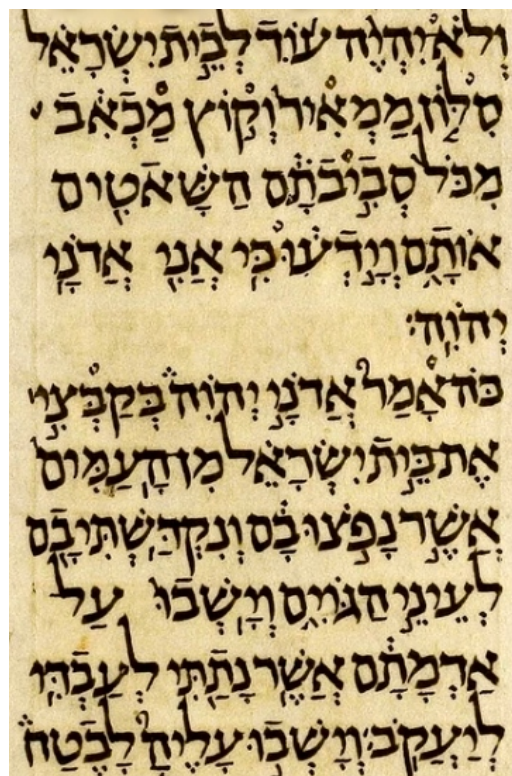 וְלֹא יִהְיֶה עוֹד לְבֵית יִשְׂרָאֵל
סִלּוֹן מַמְאִיר וְקוֹץ מַכְאִב
מִכֹּל סְבִיבֹתָם הַשָּׁאטִים
אוֹתָם וְיָדְעוּ כִּי אֲנִי אֲדֹנָי
יְהֹוִה׃
כֹּה אָמַר אֲדֹנָי יְהֹוִה בְּקַבְּצִי
אֶת בֵּית יִשְׂרָאֵל מִן הָעַמִּים
אֲשֶׁר נָפֹצוּ בָם וְנִקְדַּשְׁתִּי בָם
לְעֵינֵי הַגּוֹיִם וְיָשְׁבוּ עַל
אַדְמָתָם אֲשֶׁר נָתַתִּי לְעַבְדִּי
לְיַעֲקֹב׃ וְיָשְׁבוּ עָלֶיהָ לָבֶטַח